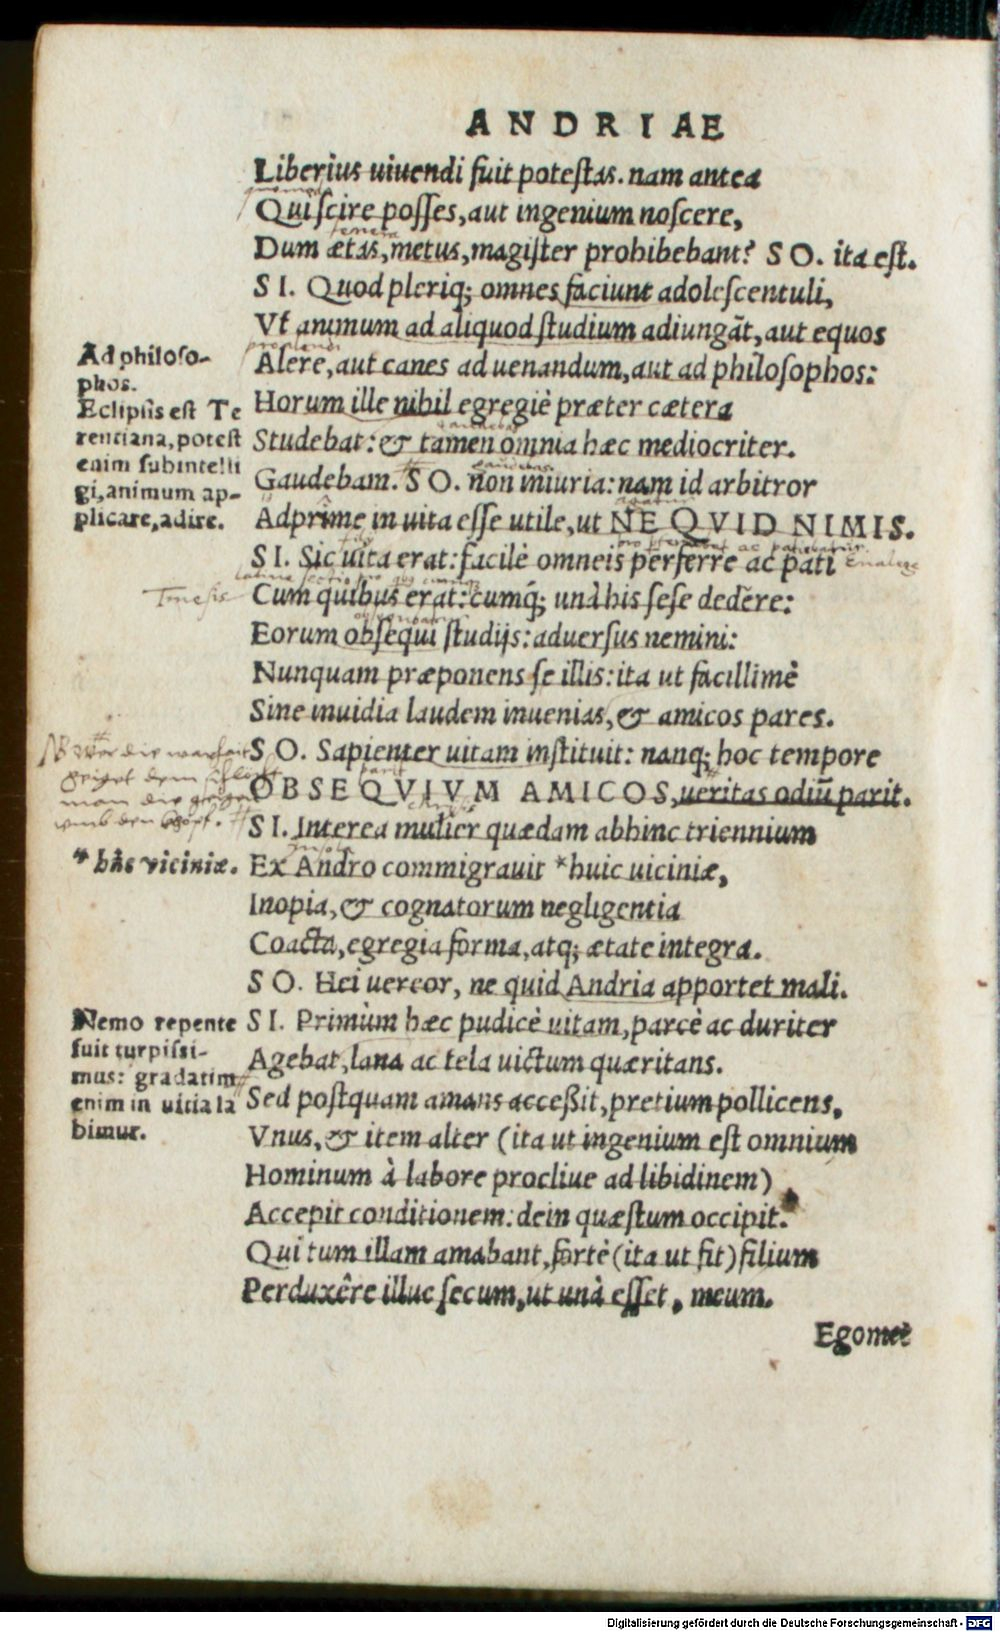 ANDRIAE
Liberius uiuendi fuit potestas. nam antea
quomodo
Qui scire posses, aut ingenium noscere,
tenera
Dum ætas, metus, magister prohibebant? SO. ita est.
SI. Quod pleriq; omnes faciunt adolescentuli,
Vt animum ad aliquod studium adiungāt, aut equos
Alere, aut canes ad uenandum, aut ad philosophos:
Ad philoso-
phos.
Eclipsis est Te
rentiana, potest
enim subintelli
gi, animum ap-
plicare, adire.
Horum ille nihil egregiè præter cætera
Studebat: & tamen omnia hæc mediocriter.
Gaudebam. SO. non iniuria: nam id arbitror
Adprime in uita esse utile, ut NE QVID NIMIS.
SI. Sic uita erat: facilè omneis perferre ac pati
Enalage
Tmesis
Cum quibus erat: cumq́; unà his sese dedēre:
Eorum obsequi studijs: aduersus nemini:
Nunquam præponens se illis: ita ut facillimè
Sine inuidia laudem inuenias, & amicos pares.
SO. Sapienter uitam instituit: nanq; hoc tempore
parit
OBSEQVIVM AMICOS, ueritas odiū parit.
NB Wer die warhait
geiget dem schlecht
man die geigen
umb den kopf.
SI. Interea mulier quædam abhinc triennium
insola
Ex Andro commigrauit *huic uiciniæ,
* hâc viciniæ.
Inopia, & cognatorum negligentia
Coacta, egregia forma, atq; ætate integra.
SO. Hei uereor, ne quid Andria apportet mali.
SI. Primùm hæc pudicè uitam, parcè ac duriter
Agebat, lana ac tela uictum quæritans.
Nemo repente
fuit turpissi-
mus: gradatim
enim in uitia la
bimur.
Sed postquam amans acceßit, pretium pollicens,
Vnus, & item alter (ita ut ingenium est omnium
Hominum à labore procliue ad libidinem)
Accepit conditionem: dein quæstum occipit.
Qui tum illam amabant, fortè (ita ut fit) filium
Perduxêre illuc secum, ut unà esset, meum.
Egomet
Digitalisierung gefördert durch die Deutsche Forschungsgemeinschaft - DFG